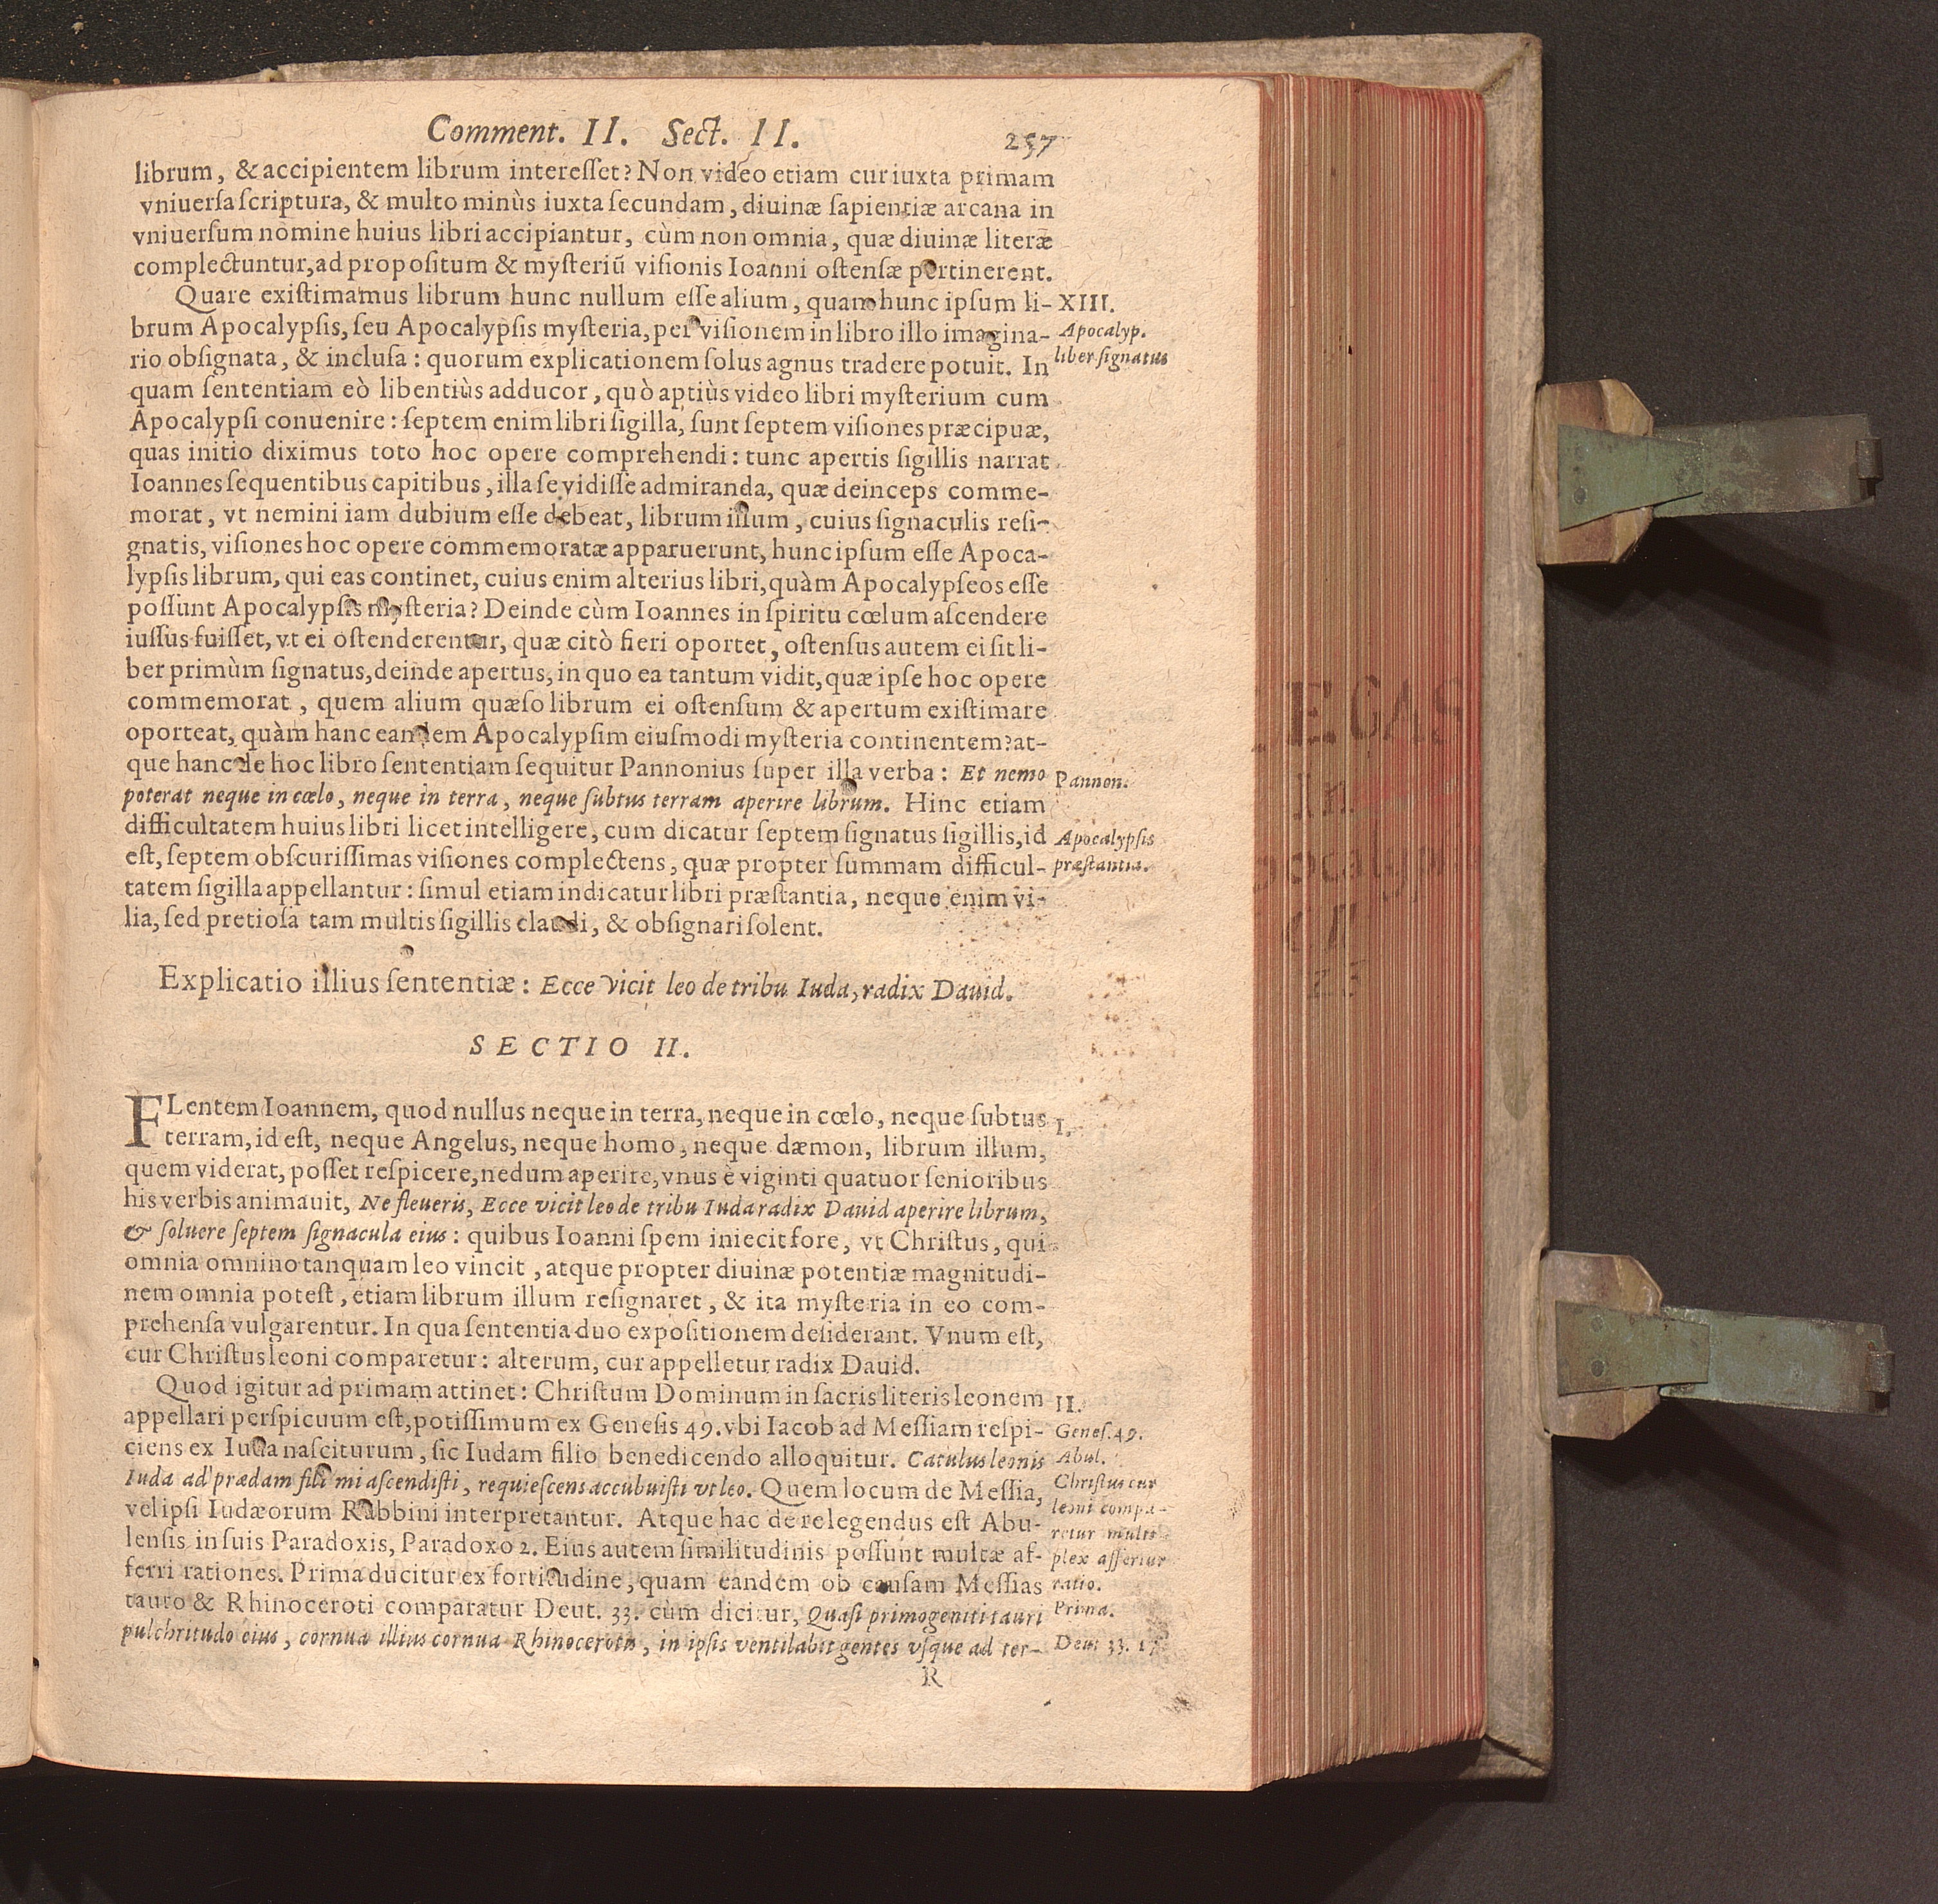 Comment. II. Sect. II. 257
librum, & accipientem librum interesset? Non video etiam cur iuxta primam
vniuersa scriptura, & multo minùs iuxta secundam, diuinæ sapientiæ arcana in
vniuersum nomine huius libri accipiantur, cùm non omnia, quæ diuinæ literæ
complectuntur, ad propositum & mysteriũ visionis Ioanni ostensæ pertinerent.
Quare existimamus librum hunc nullum esse alium, quam hunc ipsum li-
XIII.
brum Apocalypsis, seu Apocalypsis mysteria, per visionem in libro illo imagina-
Apocalyp.
rio obsignata, & inclusa: quorum explicationem solus agnus tradere potuit. In
liber signatus
quam sententiam eò libentiùs adducor, quò aptiùs video libri mysterium cum
Apocalypsi conuenire: septem enim libri sigilla, sunt septem visiones præcipuæ,
quas initio diximus toto hoc opere comprehendi: tunc apertis sigillis narrat
Ioannes sequentibus capitibus, illa se vidisse admiranda, quæ deinceps comme-
morat, vt nemini iam dubium esse debeat, librum illum, cuius signaculis resi-
gnatis, visiones hoc opere commemoratæ apparuerunt, hunc ipsum esse Apoca-
lypsis librum, qui eas continet, cuius enim alterius libri, quàm Apocalypseos esse
possunt Apocalypsis mysteria? Deinde cùm Ioannes in spiritu cœlum ascendere
iussus fuisset, vt ei ostenderentur, quæ citò fieri oportet, ostensus autem ei sit li-
ber primùm signatus, deinde apertus, in quo ea tantum vidit, quæ ipse hoc opere
commemorat, quem alium quæso librum ei ostensum & apertum existimare
oporteat, quàm hanc eandem Apocalypsim eiusmodi mysteria continentem? at-
que hanc de hoc libro sententiam sequitur Pannonius super illa verba: Et nemo
Pannon.
poterat neque in cœlo, neque in terra, neque subtus terram aperire librum. Hinc etiam
difficultatem huius libri licet intelligere, cum dicatur septem signatus sigillis, id
Apocalypsis
est, septem obscurissimas visiones complectens, quæ propter summam difficul-
præstantia.
tatem sigilla appellantur: simul etiam indicatur libri præstantia, neque enim vi-
lia, sed pretiosa tam multis sigillis claudi, & obsignari solent.
Explicatio illius sententiæ: Ecce vicit leo de tribu Iuda, radix Dauid.
SECTIO II.
FLentem Ioannem, quod nullus neque in terra, neque in cœlo, neque subtus
I.
terram, id est, neque Angelus, neque homo, neque dæmon, librum illum,
quem viderat, posset respicere, nedum aperire, vnus è viginti quatuor senioribus
his verbis animauit, Ne fleueris, Ecce vicit leo de tribu Iuda radix Dauid aperire librum,
& soluere septem signacula eius: quibus Ioanni spem iniecit fore, vt Christus, qui
omnia omnino tanquam leo vincit, atque propter diuinæ potentiæ magnitudi-
nem omnia potest, etiam librum illum resignaret, & ita mysteria in eo com-
prehensa vulgarentur. In qua sententia duo expositionem desiderant. Vnum est,
cur Christus leoni comparetur: alterum, cur appelletur radix Dauid.
Quod igitur ad primam attinet: Christum Dominum in sacris literis leonem
II.
appellari perspicuum est, potissimum ex Genesis 49. vbi Iacob ad Messiam respi-
Genes. 49.
ciens ex Iuda nasciturum, sic Iudam filio benedicendo alloquitur. Catulus leonis
Abul.
Iuda ad prædam fili mi ascendisti, requiescens accubuisti vt leo. Quem locum de Messia,
Christus cur
vel ipsi Iudæorum Rabbini interpretantur. Atque hac de re legendus est Abu-
leoni compa-
lensis in suis Paradoxis, Paradoxo 2. Eius autem similitudinis possunt multæ af-
retur multi-
plex assertur
ferri rationes. Prima ducitur ex fortitudine, quam eandem ob causam Messias
ratio.
tauro & Rhinoceroti comparatur Deut. 33. cùm dicitur, Quasi primogeniti tauri
Prima.
pulchritudo eius, cornua illius cornua Rhinocerotis, in ipsis ventilabit gentes vsque ad ter-
Deut 33. 17
R